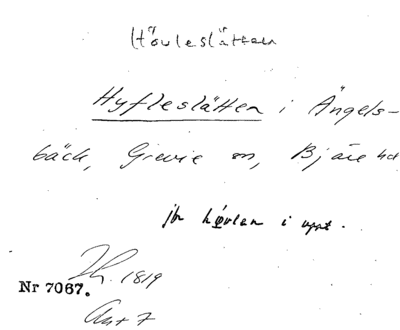 Hövleslätten
Hyfleslätten i Ängels-
bäck, Grevie sn, Bjäre hd
jfr hövlen i uppt.
1819
Nr 7067.
Akt 7